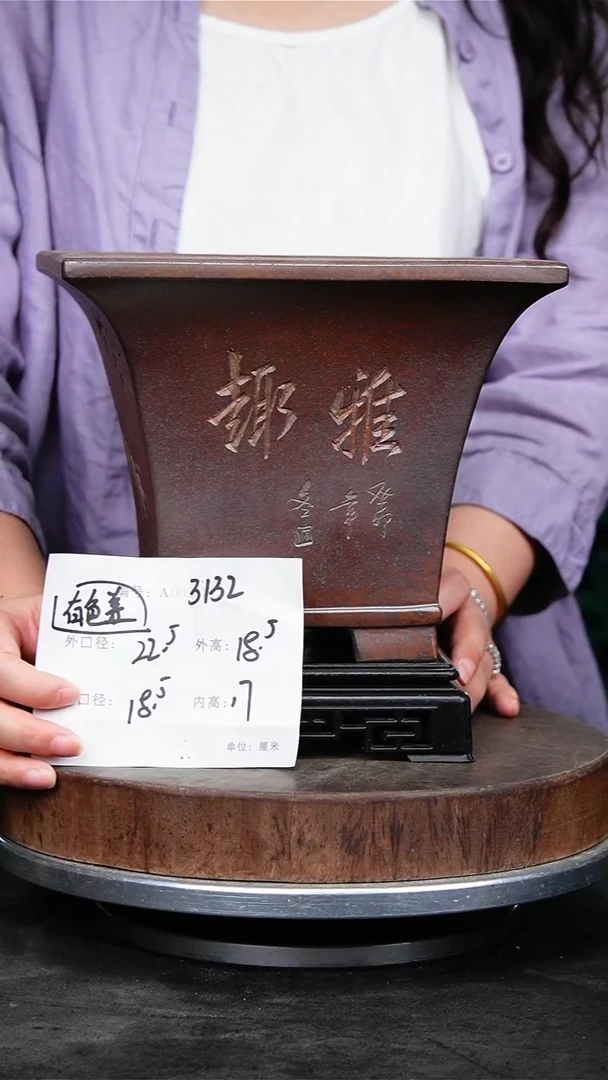 雅趣
编号：A 3132
有色差
外口径：22.5 外高：18.5
口径：18.5 内高：17
单位：厘米